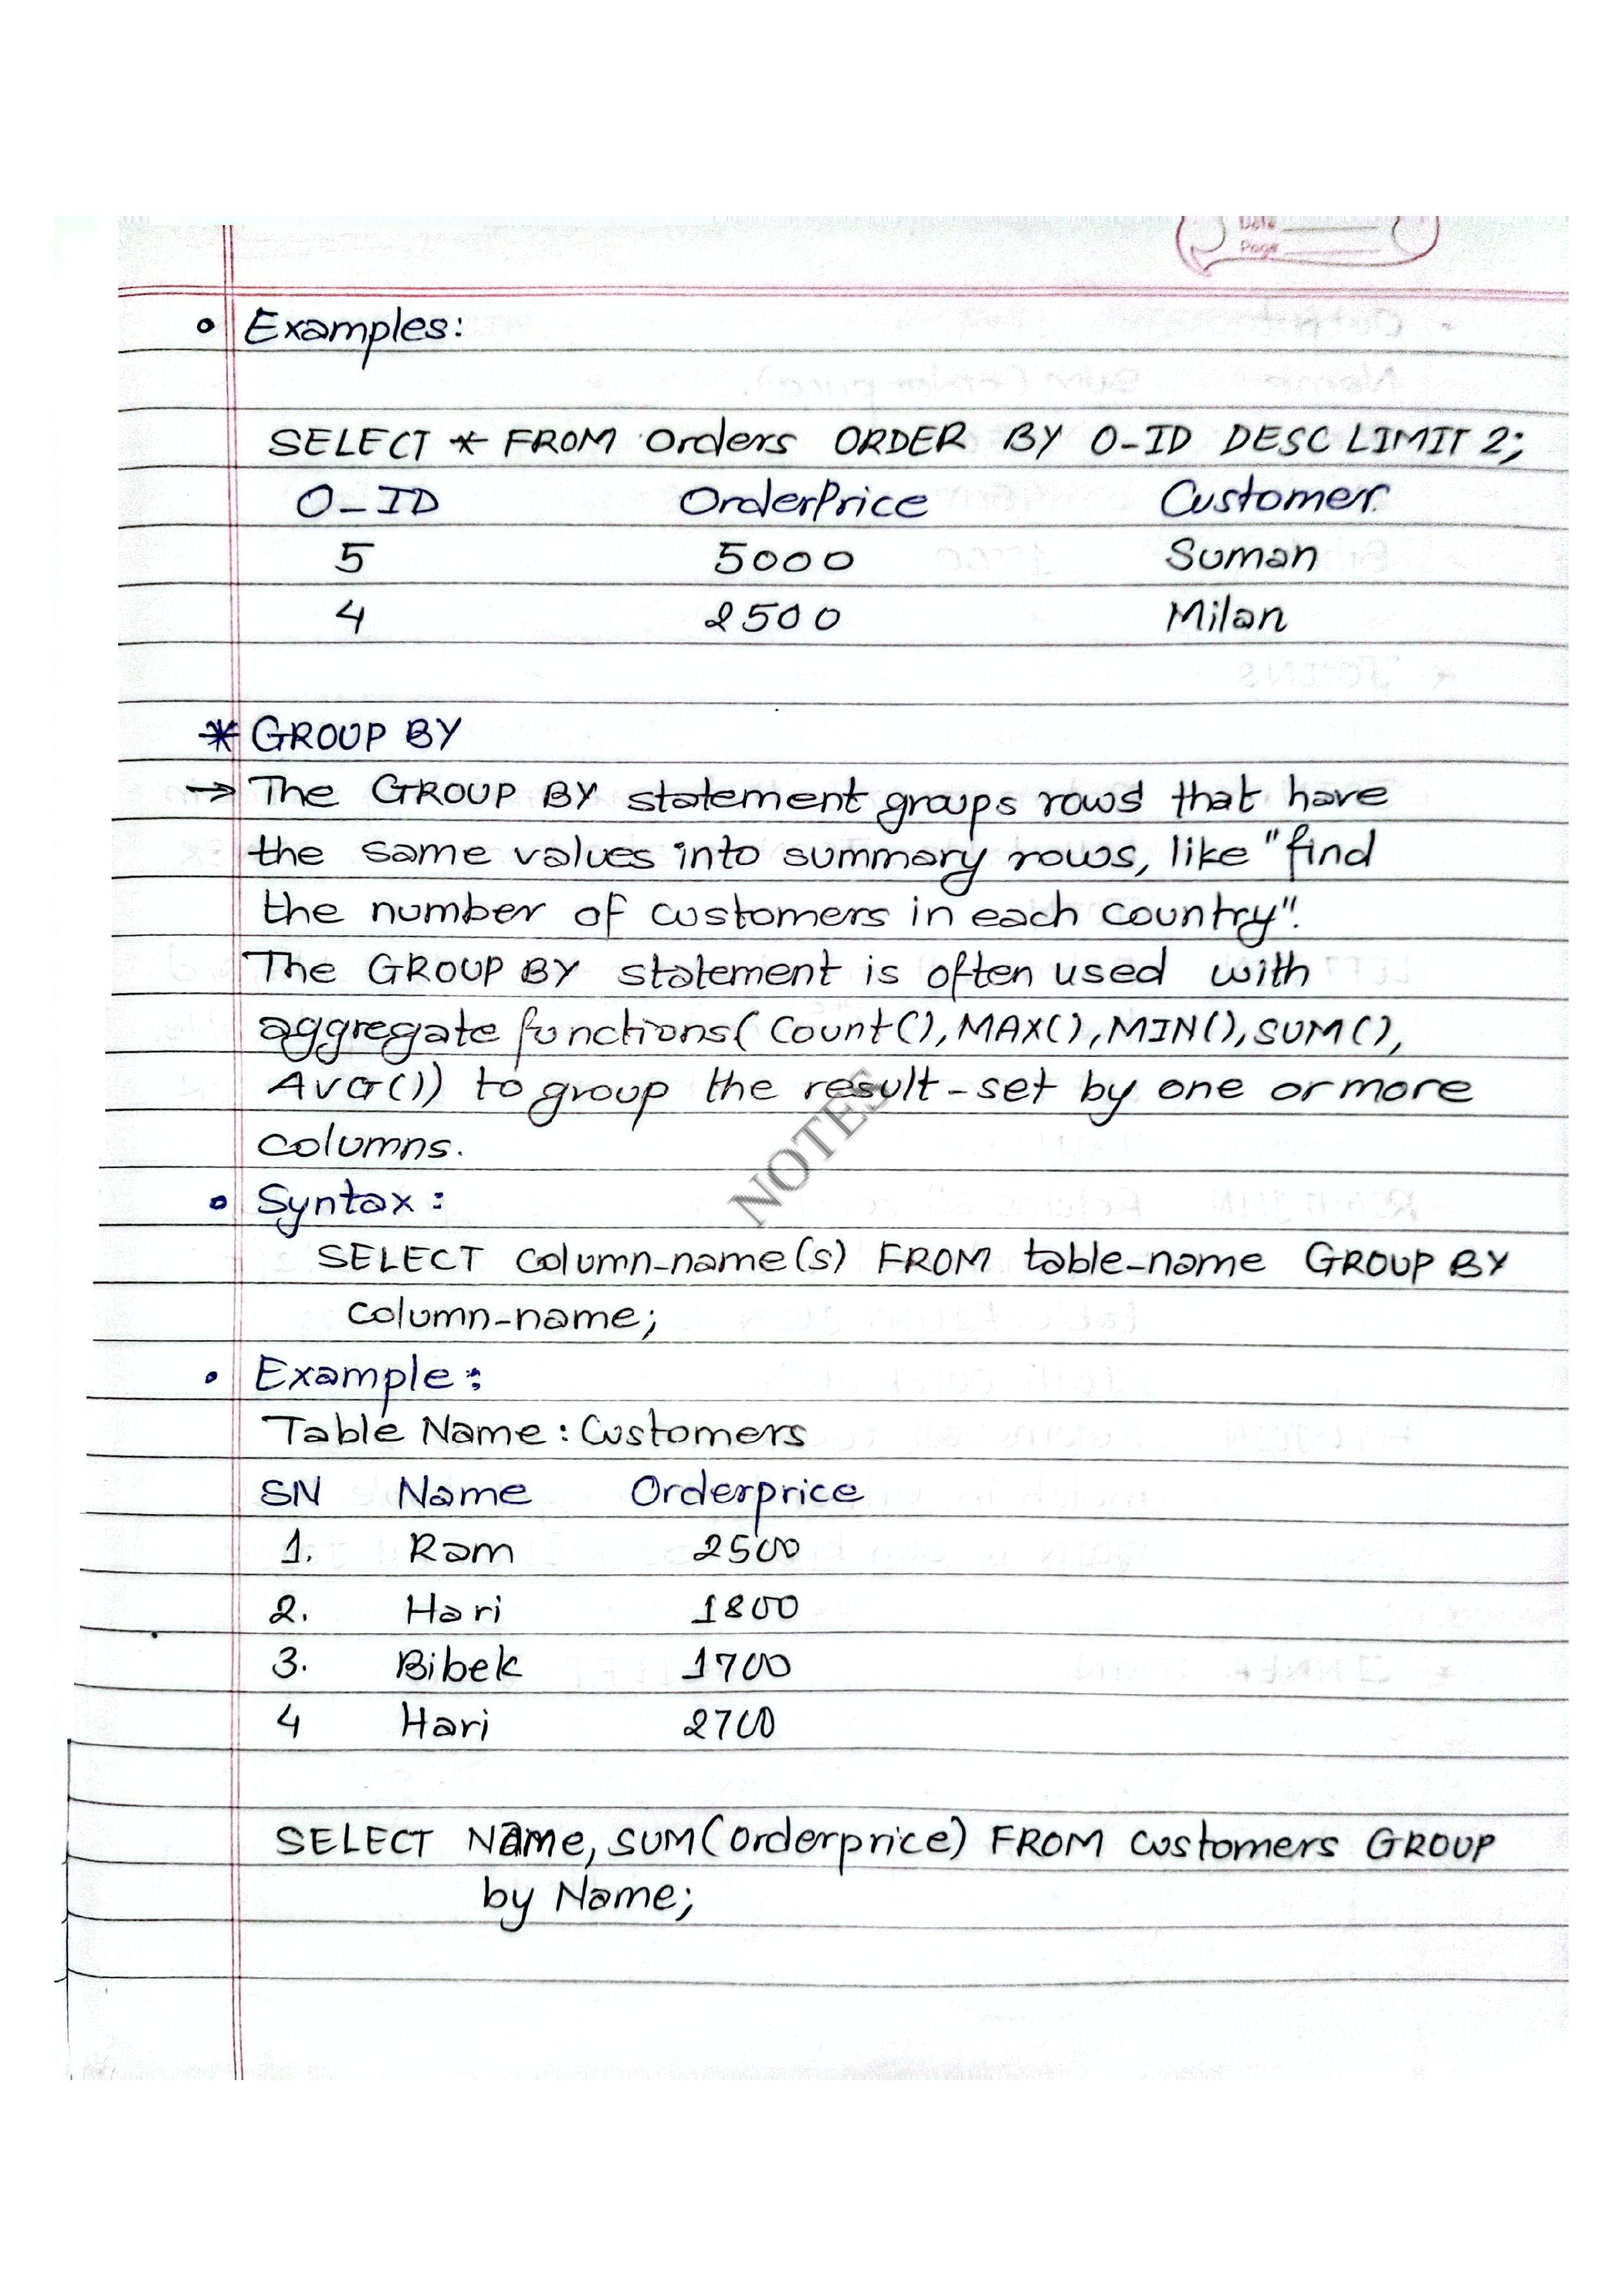 Date
Page
• Examples:
SELECT * FROM Orders ORDER BY O-ID DESC LIMIT 2;
O-ID OrderPrice Customer
5 5000 Suman
4 2500 Milan
* GROUP BY
→ The GROUP BY statement groups rows that have
the same values into summary rows, like "find
the number of customers in each country".
The GROUP BY statement is often used with
aggregate functions (Count(), MAX(), MIN(), SUM(),
AVG()) to group the result-set by one or more
columns.
NOTES
• Syntax:
SELECT column-name(s) FROM table-name GROUP BY
column-name;
• Example:
Table Name: Customers
SN Name Orderprice
1. Ram 2500
2. Hari 1800
3. Bibek 1700
4 Hari 2700
SELECT Name, SUM(Orderprice) FROM Customers GROUP
by Name;